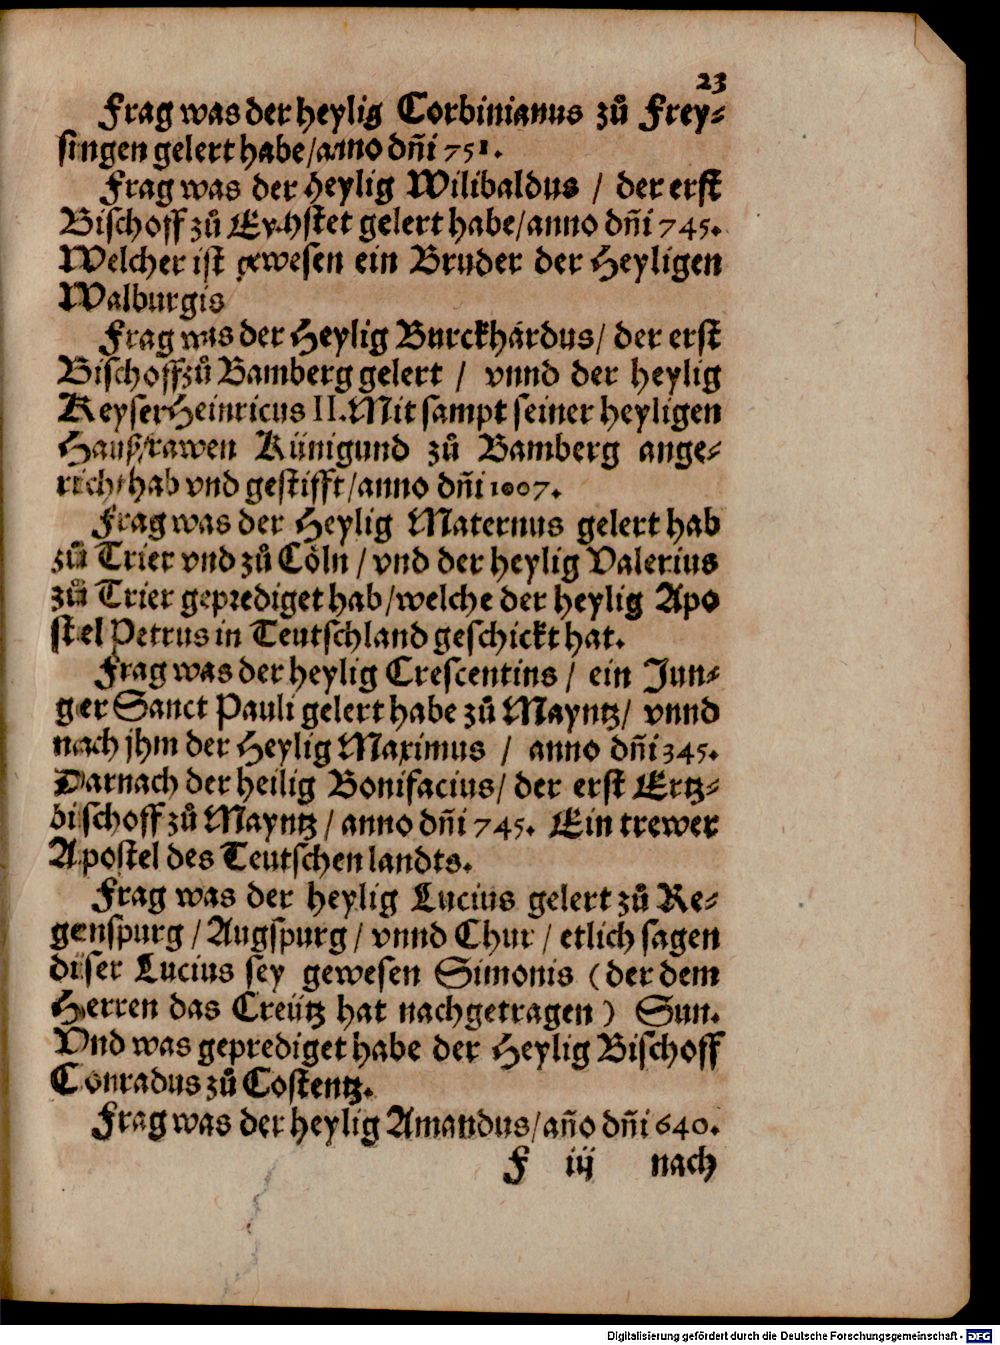 23
Frag was der heylig Corbinianus zů Frey⸗
singen gelert habe/anno dn̄i 751.
Frag was der heylig Wilibaldus / der erst
Bischoff zů Eychstet gelert habe/anno dn̄i 745.
Welcher ist gewesen ein Bruder der Heyligen
Walburgis
Frag was der Heylig Burckhardus/ der erst
Bischoff zů Bamberg gelert / vnnd der heylig
Keyser Heinricus II. Mit sampt seiner heyligen
Haußfrawen Künigund zů Bamberg ange⸗
richt hab vnd gestifft/anno dn̄i 1007.
Frag was der Heylig Maternus gelert hab
zů Trier vnd zů Cöln / vnd der heylig Valerius
zů Trier geprediget hab/welche der heylig Apo
stel Petrus in Teutschland geschickt hat.
Frag was der heylig Crescentius / ein Jun⸗
ger Sanct Pauli gelert habe zů Mayntz/ vnnd
nach jhm der Heylig Maximus / anno dn̄i 345.
Darnach der heilig Bonifacius/ der erst Ertz⸗
bischoff zů Mayntz / anno dn̄i 745. Ein trewer
Apostel des Teutschen landts.
Frag was der heylig Lucius gelert zů Re⸗
genspurg / Augspurg / vnnd Chur / etlich sagen
diser Lucius sey gewesen Simonis (der dem
Herren das Creütz hat nachgetragen) Sun.
Vnd was geprediget habe der Heylig Bischoff
Conradus zů Costentz.
Frag was der heylig Amandus/an̄o dn̄i 640.
F iij nach
Digitalisierung gefördert durch die Deutsche Forschungsgemeinschaft - DFG